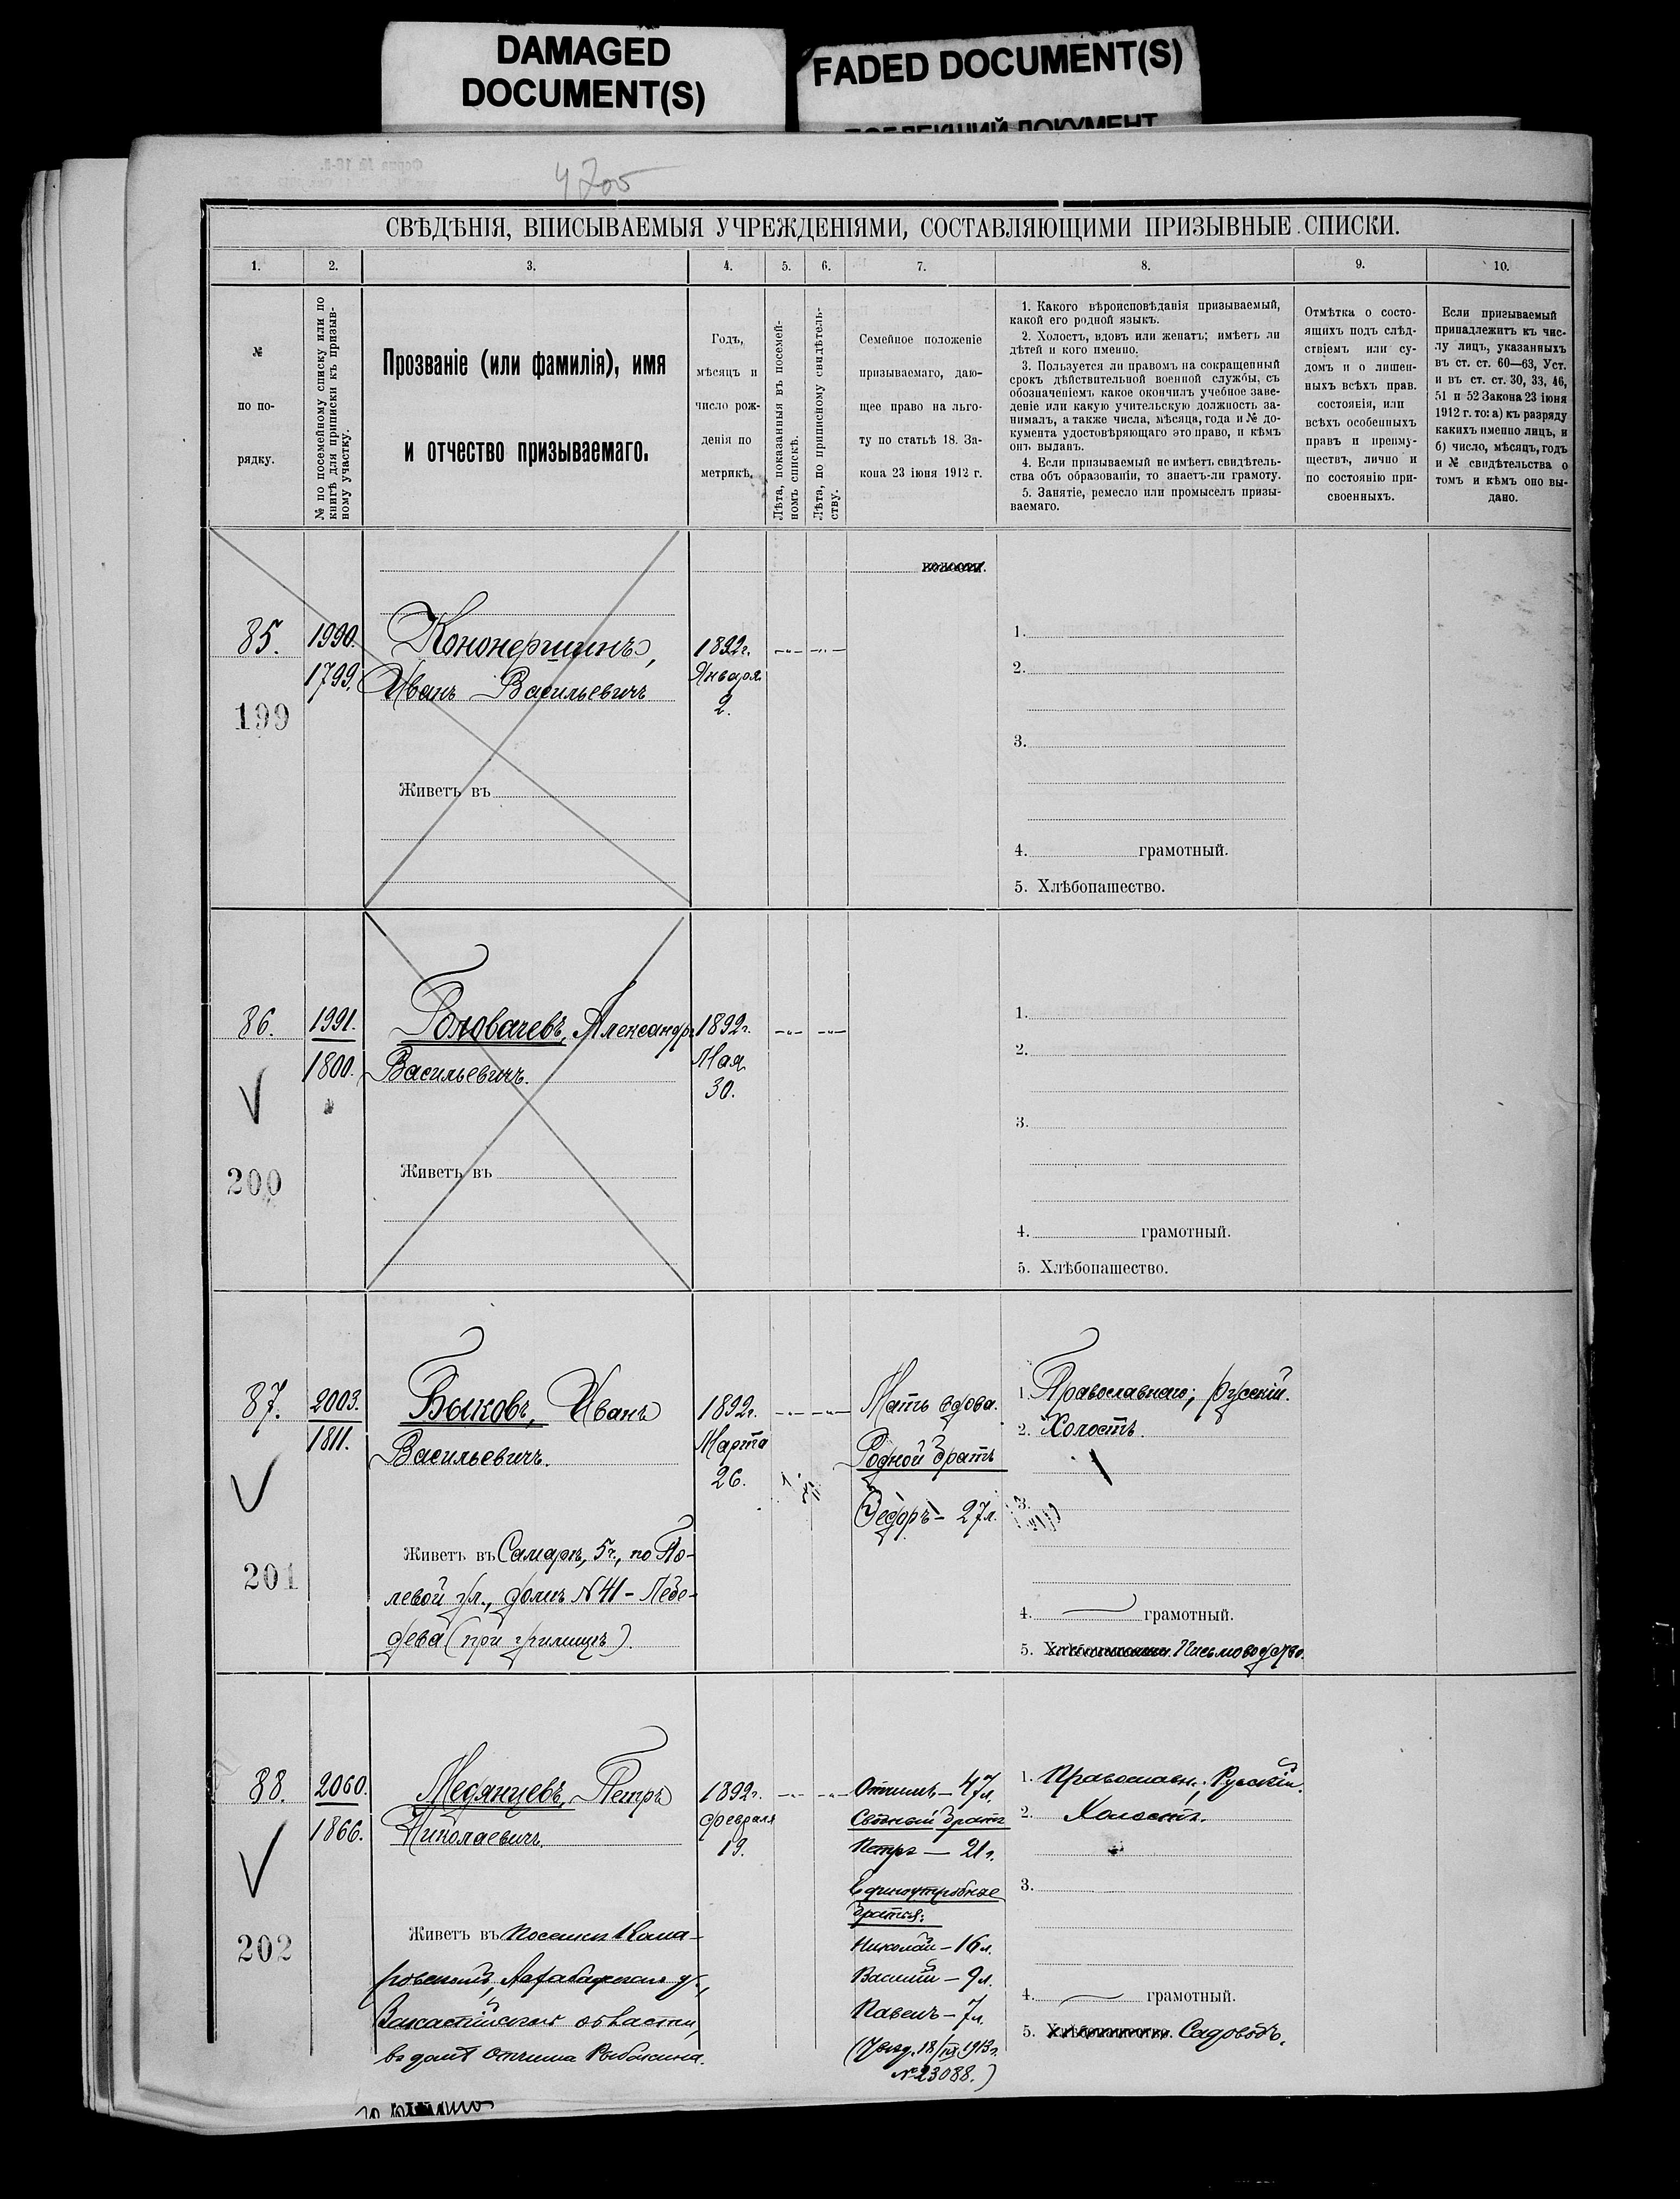 DAMAGED
DOCUMENT(S)
FADED DOCUMENT(S)
4700
СВѢДѢНІЯ, ВПИСЫВАЕМЫЯ УЧРЕЖДЕНІЯМИ, СОСТАВЛЯЮЩИМИ ПРИЗЫВНЫЕ СПИСКИ.
1. 2. 3. 4. 5. 6. 7. 8. 9. 10.
№
по по-
рядку.
№ по посемейному списку или по
книгѣ для приписки къ призыв-
ному участку.
Прозваніе (или фамилія), имя
и отчество призываемаго.
Годъ,
мѣсяцъ и
число рож-
денія по
метрикѣ.
Лѣта, показанныя въ посемей-
номъ спискѣ.
Лѣта, по приписному свидѣтель-
ству.
Семейное положеніе
призываемаго, даю-
щее право на льго-
ту по статьѣ 18. За-
кона 23 іюня 1912 г.
1. Какого вѣроисповѣданія призываемый,
какой его родной языкъ.
2. Холостъ, вдовъ или женатъ; имѣетъ ли
дѣтей и кого именно.
3. Пользуется ли правомъ на сокращенный
срокъ дѣйствительной военной службы, съ
обозначеніемъ какое окончилъ учебное заве-
деніе или какую учительскую должность за-
нималъ, а также числа, мѣсяца, года и № до-
кумента удостовѣряющаго это право, и кѣмъ
онъ выданъ.
4. Если призываемый не имѣетъ свидѣтель-
ства объ образованіи, то знаетъ-ли грамоту.
5. Занятіе, ремесло или промыселъ призы-
ваемаго.
Отмѣтка о состо-
ящихъ подъ слѣд-
ствіемъ или су-
домъ и о лишен-
ныхъ всѣхъ прав.
состоянія, или
всѣхъ особенныхъ
правъ и преиму-
ществъ, лично и
по состоянію при-
своенныхъ.
Если призываемый
принадлежитъ къ чис-
лу лицъ, указанныхъ
въ ст. ст. 60—63, Уст.
и въ ст. ст. 30, 33, 46,
51 и 52 Закона 23 іюня
1912 г. то: а) къ разряду
какихъ именно лицъ, и
б) число, мѣсяцъ, годъ
и № свидѣтельства о
томъ и кѣмъ оно вы-
дано.
85. 1990. Кононершинъ, 1892г.
1799. Иванъ Васильевичъ Января
199 2.
Живетъ въ
1.
2.
3.
4. грамотный.
5. Хлѣбопашество.
86. 1991. Головачевъ, Александръ 1892г.
1800. Васильевичъ. Мая
30.
200
Живетъ въ
1.
2.
3.
4. грамотный.
5. Хлѣбопашество.
87. 2003. Быковъ, Иванъ 1892г.
1811. Васильевичъ. Марта
26.
201
Живетъ въ Самарѣ, 5ч., по По-
левой ул., домъ N 41 - Лебе-
дева (при училищѣ).
Мать вдова.
Родной братъ
Ѳедоръ - 27 л.
1. Православнаго; русскій.
2. Холостъ.
3.
4. грамотный.
5. Письмоводство.
88. 2060. Медянцевъ, Петръ 1892г.
1866. Николаевичъ. февраля
19.
202
Живетъ въ поселкѣ Кома-
ровскомъ, Асхабадскаго у.,
Закаспійской области,
въ домѣ отчима Рыбакина.
Отчимъ - 47 л.
Сводный братъ
Петръ - 21 г.
Единоутробные
братья:
Николай - 16 л.
Василій - 9 л.
Павелъ - 7 л.
(Увѣд. 18/IX 1913 г.
№ 23088.)
1. Православн.; Русскій.
2. Холостъ.
3.
4. грамотный.
5. Садоводъ.